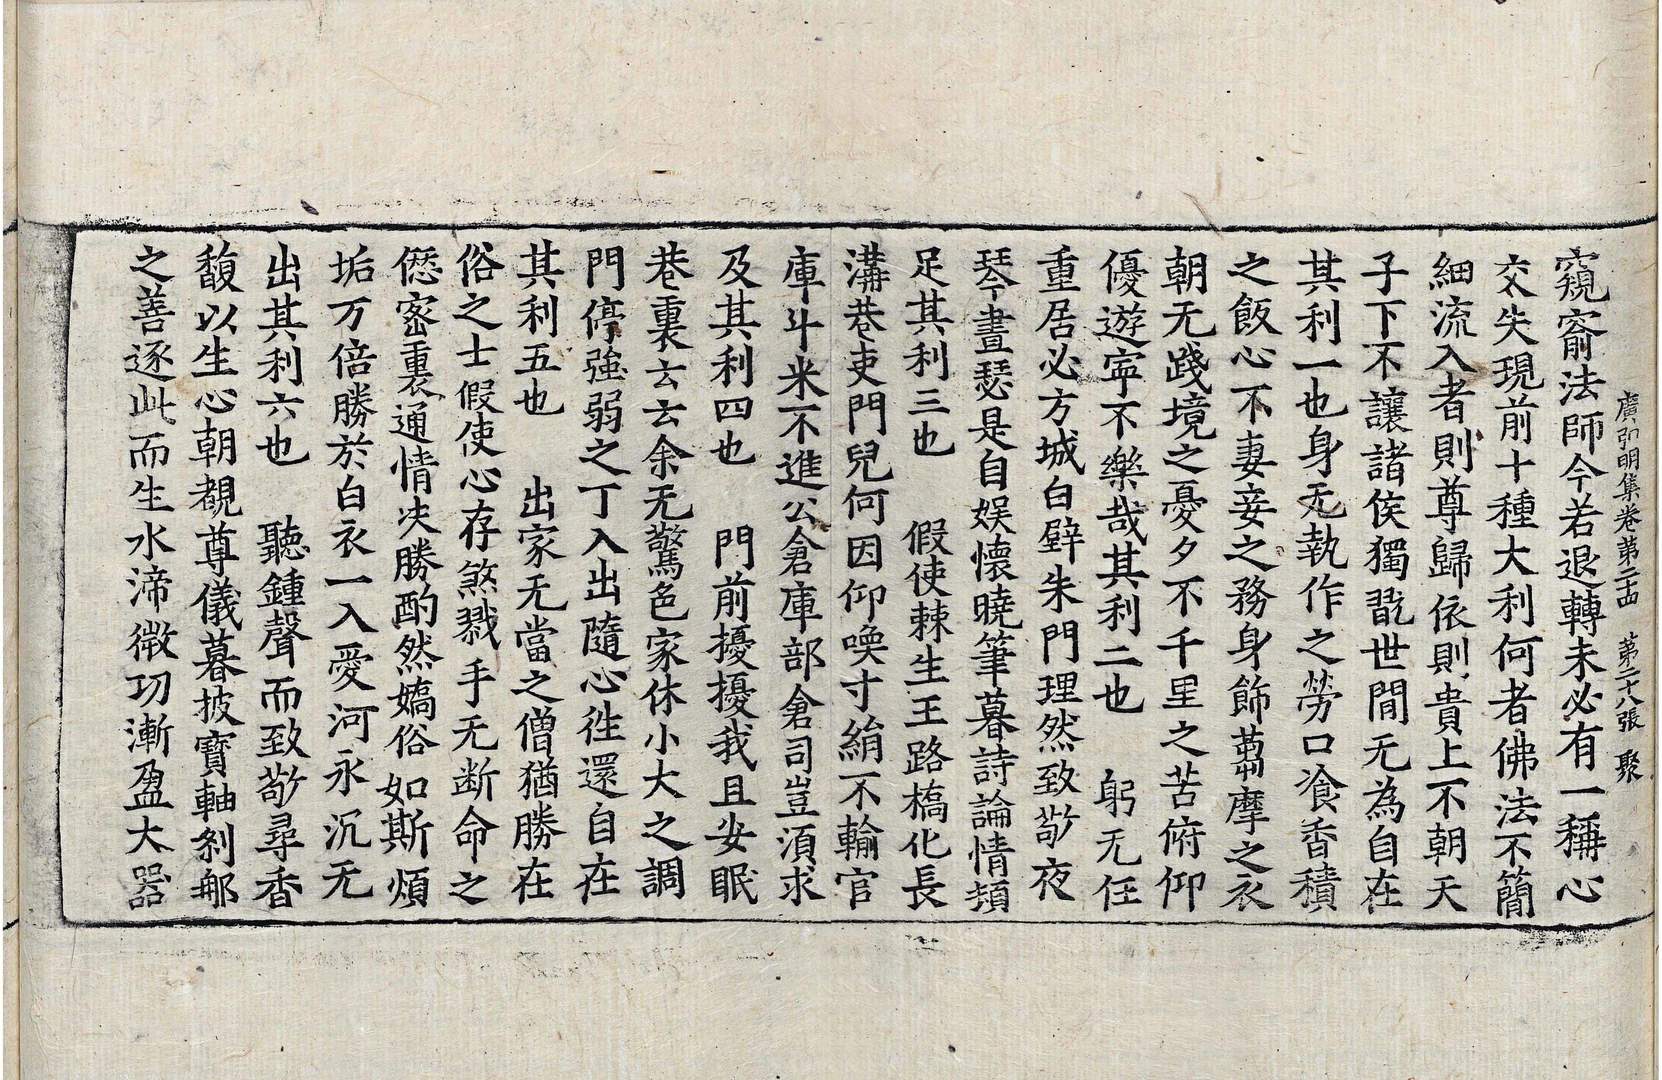 廣弘明集卷第二十四　第二十八張　聚
窺窬法師今若退轉未必有一稱心
交失現前十種大利何者佛法不簡
細流入者則尊歸依則貴上不朝天
子下不讓諸侯獨翫世間无為自在
其利一也身无執作之勞口飡香積
之飯心不妻妾之務身飾蒭摩之衣
朝无踐境之憂夕不千里之苦俯仰
優遊寧不樂哉其利二也　躬无任
重居必方城白壁朱門理然致敬夜
琴晝瑟是自娛懷曉筆暮詩論情頓
足其利三也　假使棘生王路橋化長
溝巷吏門兒何因仰喚寸絹不輸官
庫斗米不進公倉庫部倉司豈須求
及其利四也　門前擾擾我且安眠
巷裏云云余无驚色家休小大之調
門停強弱之丁入出隨心往還自在
其利五也　出家无當之僧猶勝在
俗之士假使心存煞戮手无断命之
愆密裏通情决勝酌然嬌俗如斯煩
垢万倍勝於白衣一入愛河永沉无
出其利六也　聽鍾聲而致敬尋香
馥以生心朝覩尊儀暮披寶軸剎那
之善逐此而生水渧微功漸盈大器